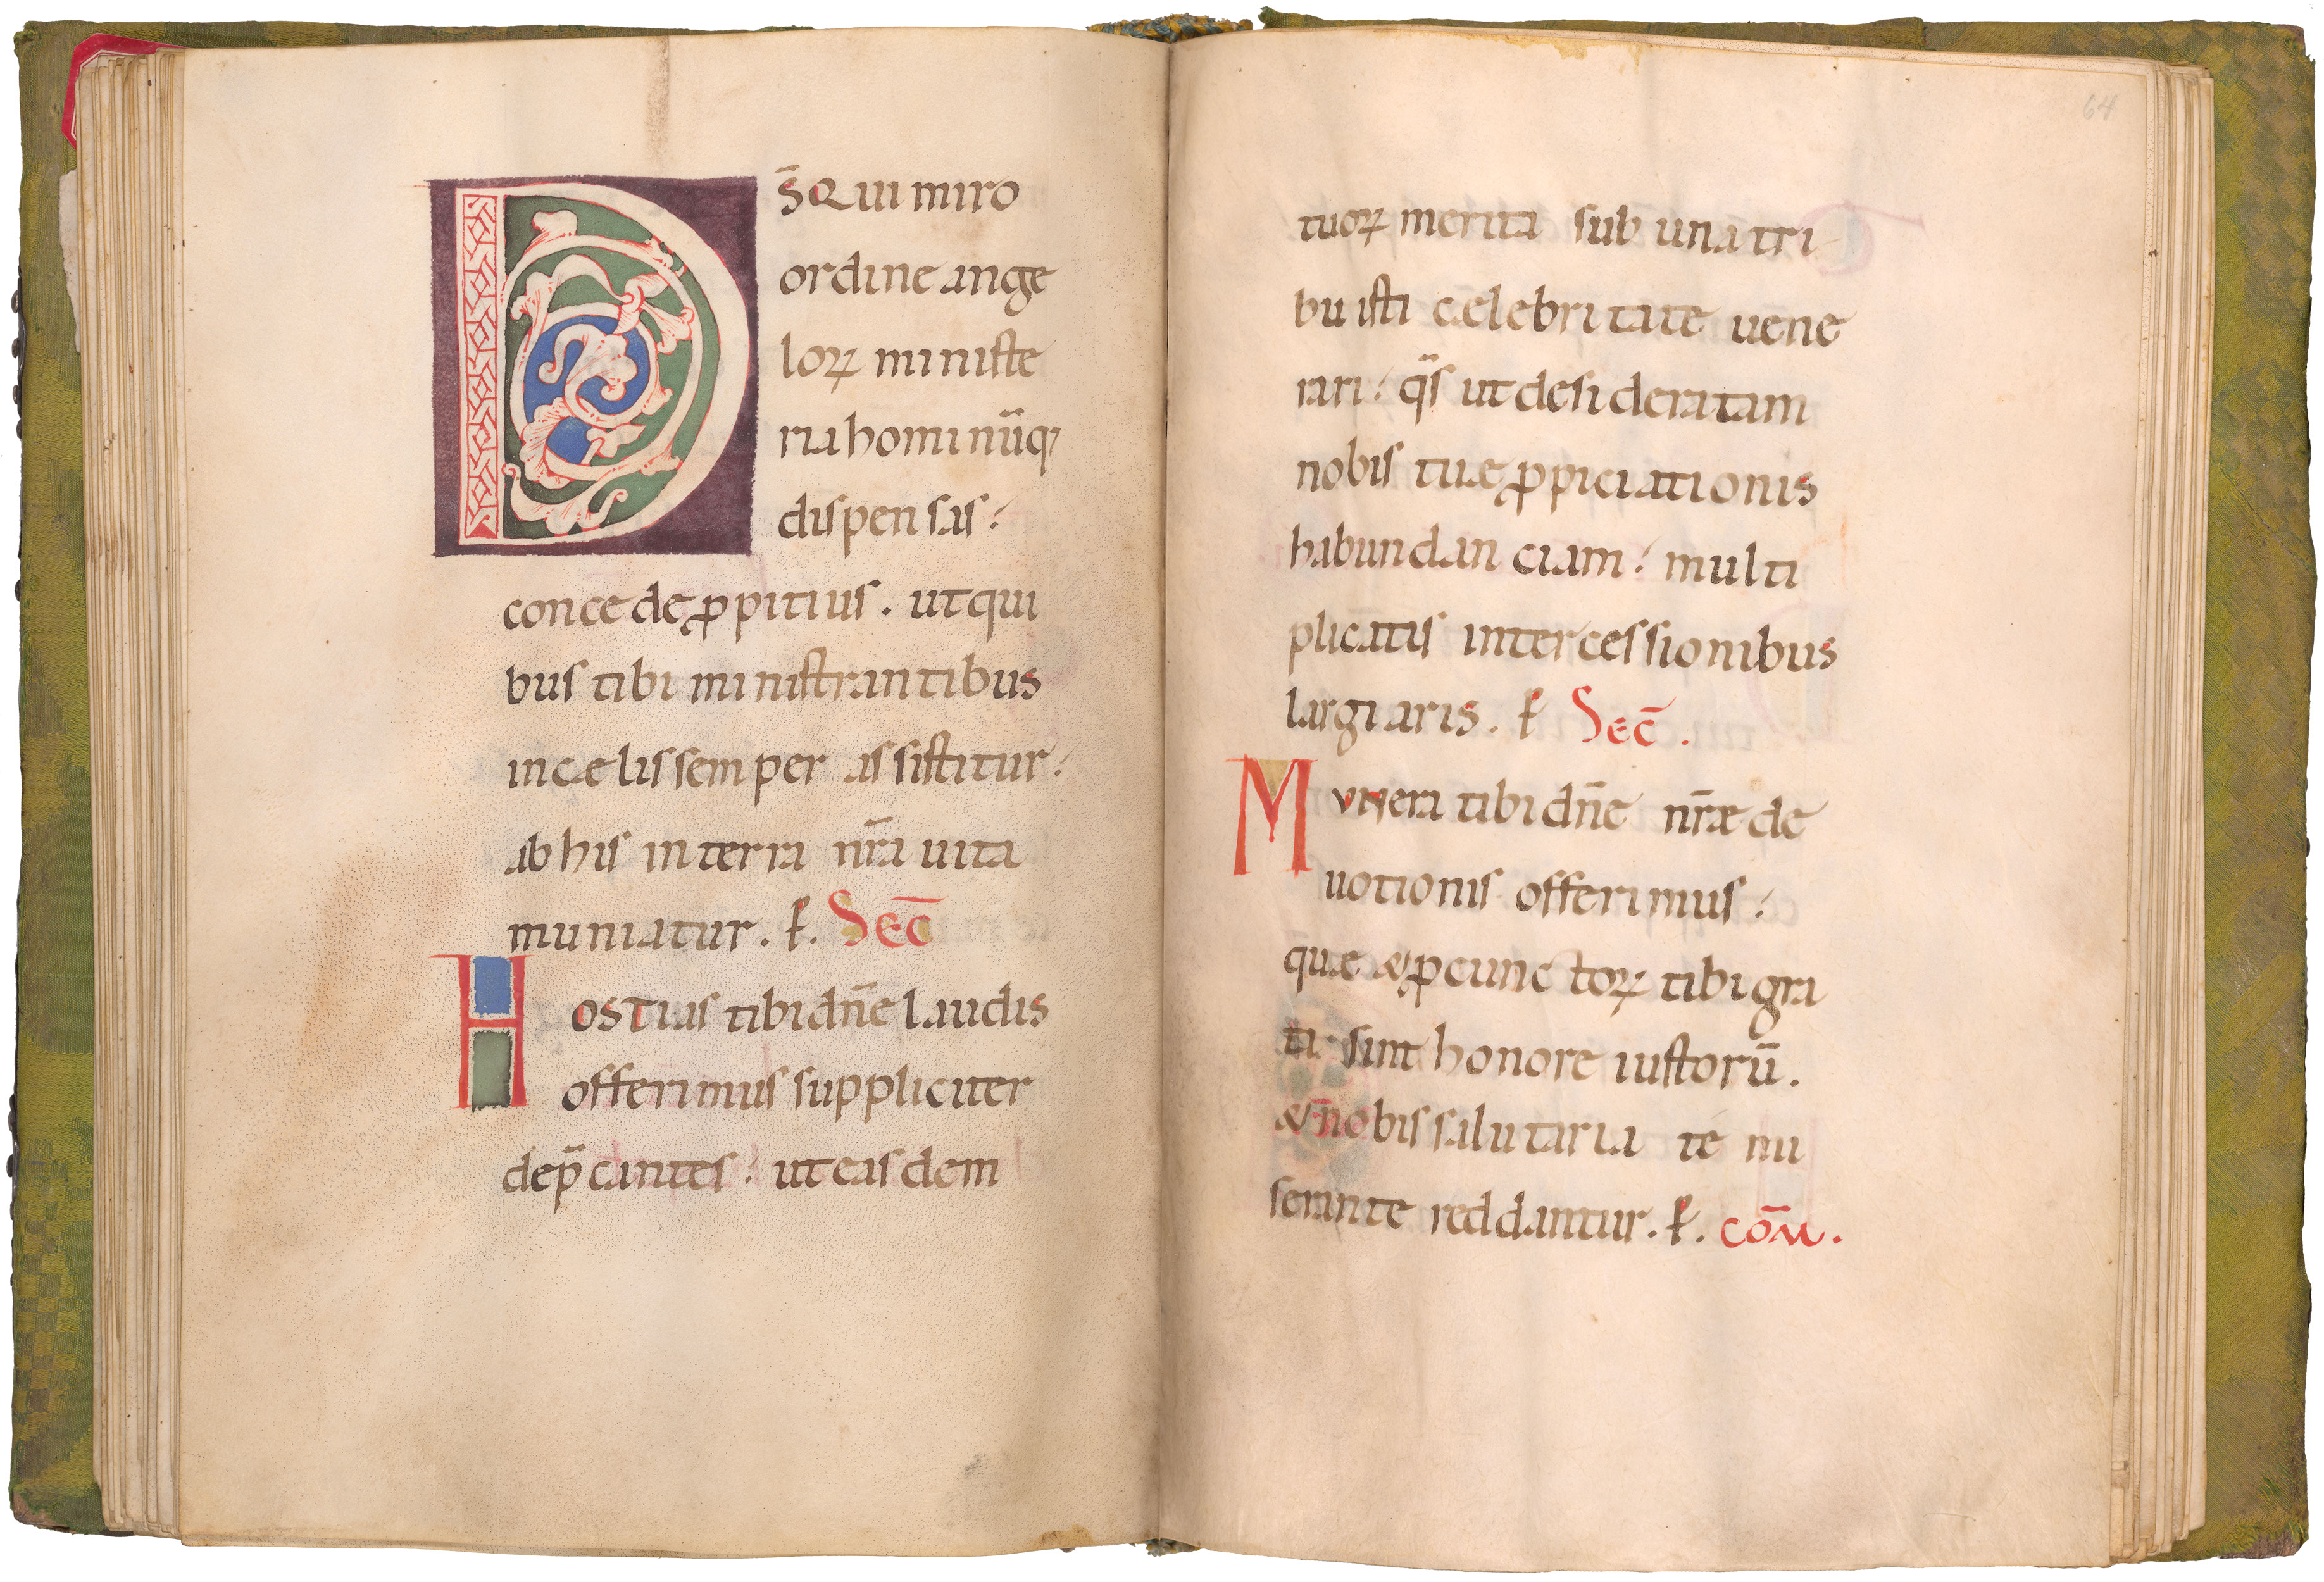 DS̄ Qui miro
ordine ange
loꝝ ministe
ria hominūq;
dispensas:
concede ꝓpitius. ut qui
bus tibi ministrantibus
in caelis semper assistitur:
ab his in terra nr̄a uita
muniatur. P̄. Sec̄
Hostias tibi dn̄e laudis
offerimus suppliciter
dep̄cantes: ut easdem
64
tuoꝝ merita sub una tri
buisti celebritate uene
rari: q̄s ut desideratam
nobis tuae ꝓpiciationis
habundanciam: multi
plicatis intercessionibus
largiaris. P̄ Sec̄.
Munera tibi dn̄e nr̄ae de
uotionis offerimus:
quae & ꝑ cunctoꝝ tibi gra
ta sint honore iustorū.
& nobis salutaria te mi
serante reddantur. P̄. Cōm.